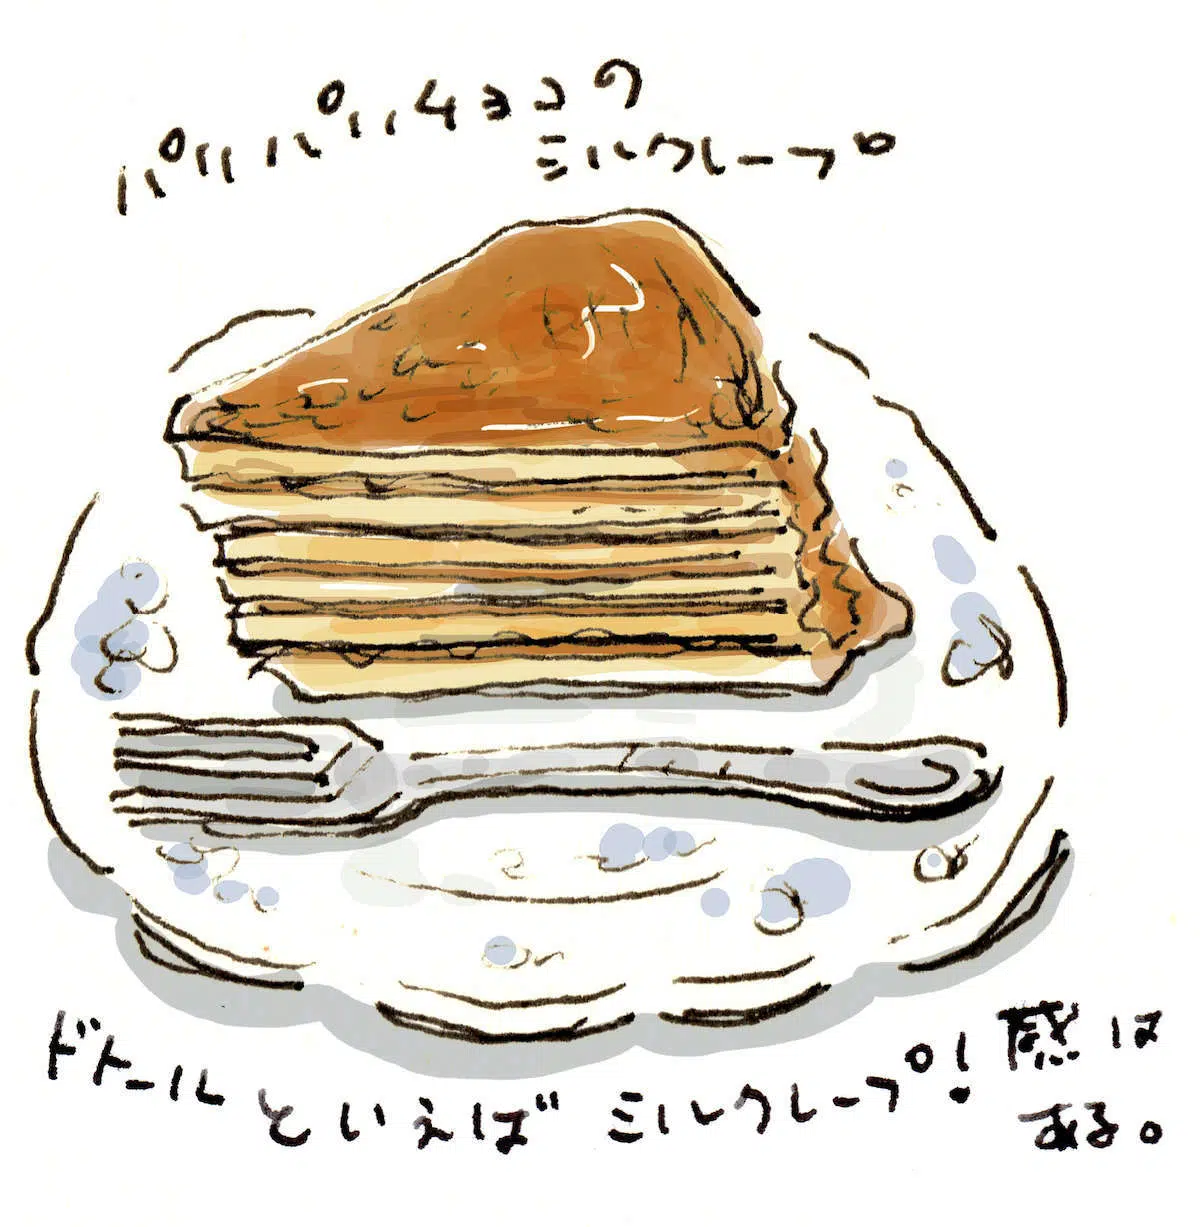 パリパリチョコの
ミルクレープ
ドトールといえばミルクレープ!感は
ある。